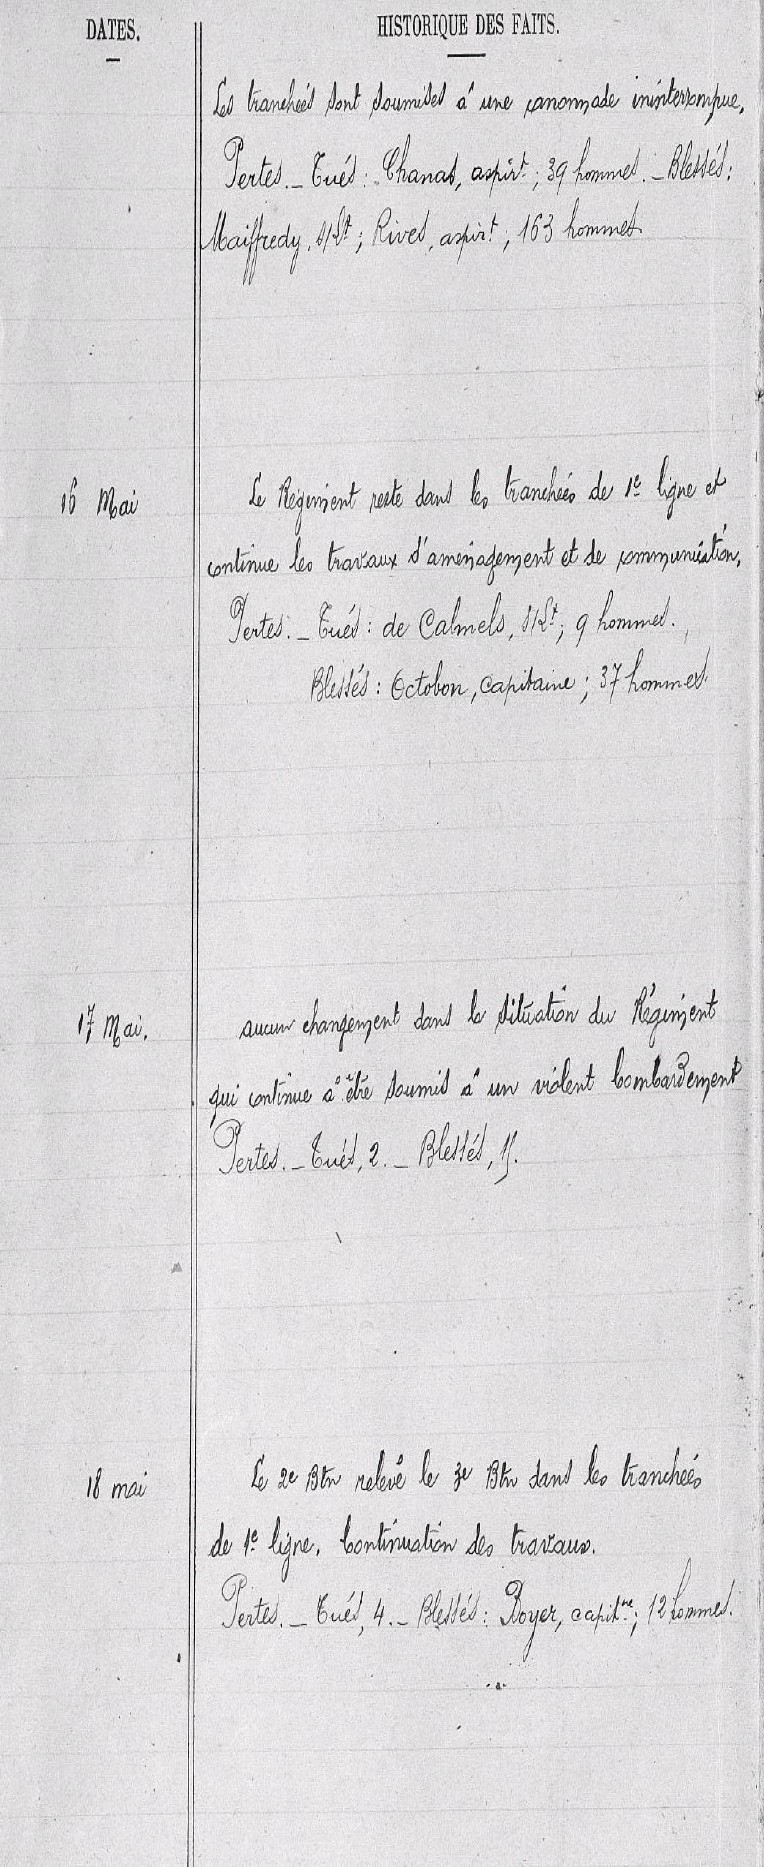 DATES.
HISTORIQUE DES FAITS.
Les tranchées sont soumises à une canonnade ininterrompue.
Pertes. _ Tués : Chanas, aspirt ; 39 hommes. _ Blessés :
Maiffredy, s/Lt ; Rives, aspirt ; 163 hommes.
16 Mai
Le Régiment reste dans les tranchées de 1e ligne et
continue les travaux d'aménagement et de communication.
Pertes. _ Tués : de Calmels, s/Lt ; 9 hommes.
Blessés : Octobon, capitaine ; 37 hommes
17 Mai.
aucun changement dans la situation du Régiment
qui continue à être soumis à un violent bombardement
Pertes. _ Tués, 2. _ Blessés,
18 mai
Le 2e Btn relève le 3e Btn dans les tranchées
de 1e ligne. Continuation des travaux.
Pertes. _ Tués, 4. _ Blessés : Boyer, capitne ; 12 hommes.